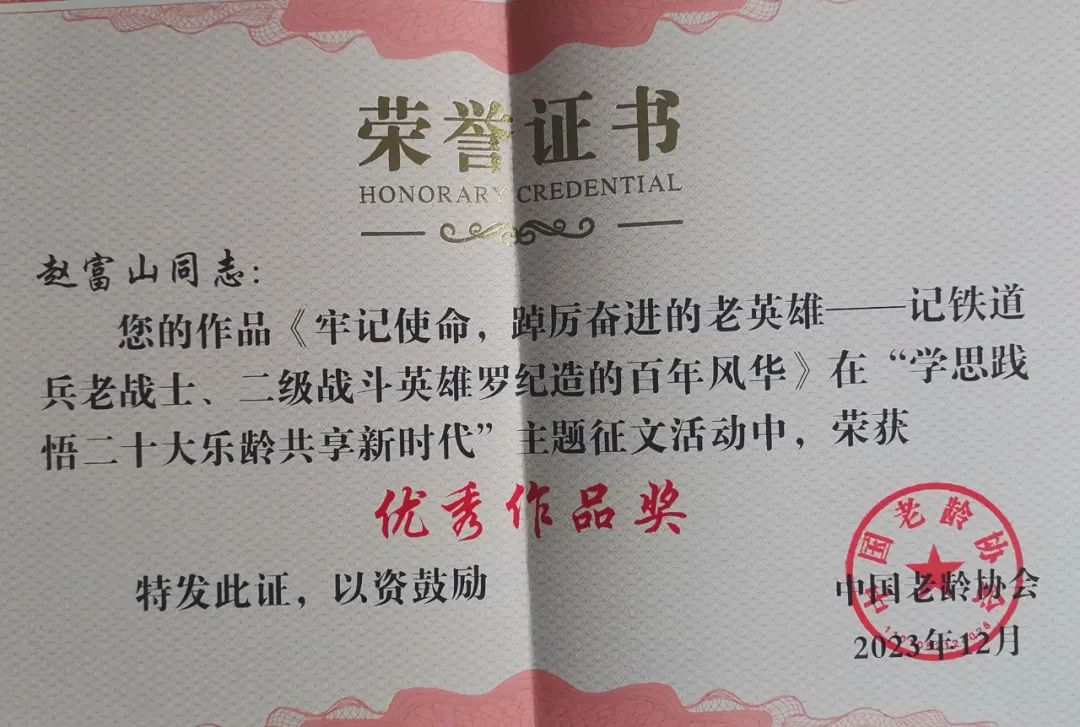 荣誉证书
HONORARY CREDENTIAL
赵富山同志:
您的作品《牢记使命，踔厉奋进的老英雄——记铁道
兵老战士、二级战斗英雄罗纪造的百年风华》在“学思践
悟二十大乐龄共享新时代”主题征文活动中，荣获
优秀作品奖
特发此证，以资鼓励
中国老龄协会
中国老龄协会
2023年12月